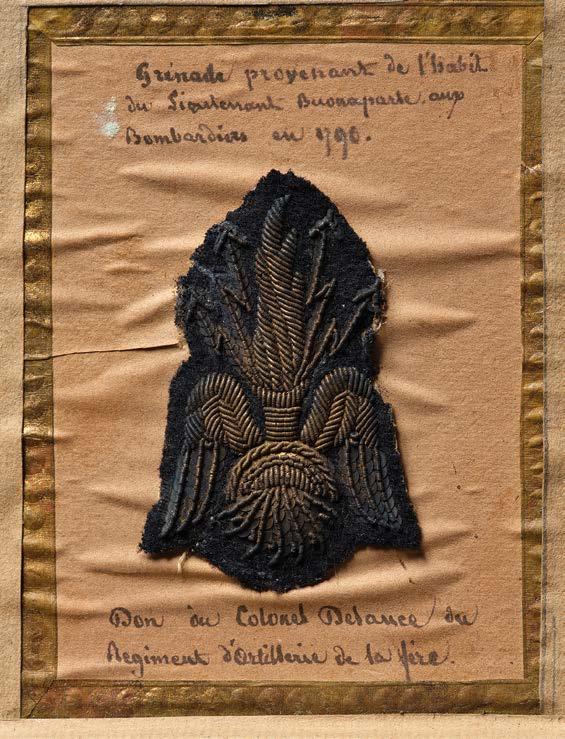 Grénade provenant de l'habit
du Lieutenant Buonaparte aux
Bombardiers en 1790.
Don du Colonel Delance du
Régiment d'Artillerie de la fère.